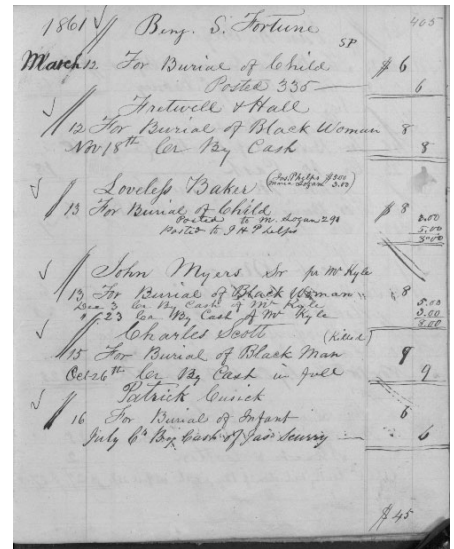 1861 Benj. S. Fortune 465
SP
March 12 For Burial of Child $ 6
Posted 335 6
Fretwell & Hall
12 For Burial of Black Woman 8
Nov 18th Cr By Cash 8
Loveless Baker (Jas. Phelps $5.00
Maria Logan 3.00)
13 For Burial of Child $ 8
Posted to M. Logan 290 3.00
Posted to J H Phelps 5.00
8.00
John Myers Sr pr Mr Kyle
13 For Burial of Black Woman " 8
Dec 3 Cr By Cash of Mr Kyle 5.00
" 23 Cr By Cash of Mr Kyle 3.00
8.00
Charles Scott (Killed)
15 For Burial of Black Man 9
Oct 26th Cr By Cash in full 9
Patrick Cusick
16 For Burial of Infant 6
July 6th By Cash of Jas Scurry 6
$ 45